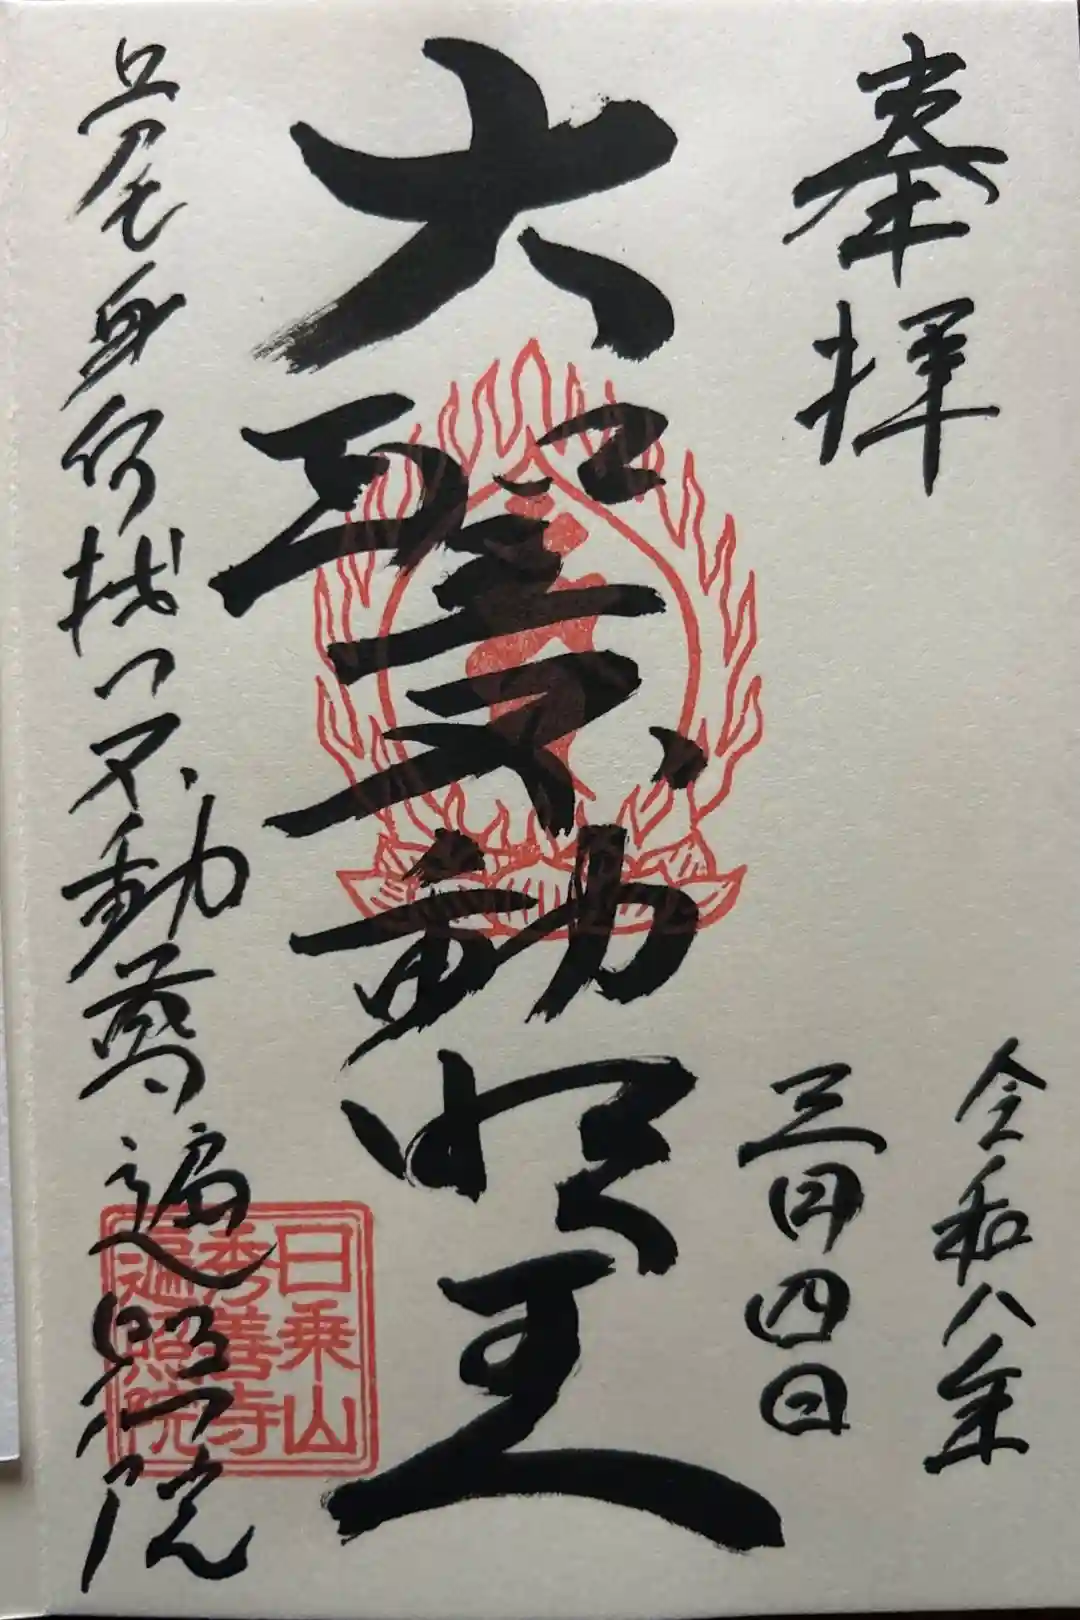 奉拝
令和八年
三月四日
大聖不動明王
不動尊 遍照院
日乗山
秀善寺
遍照院